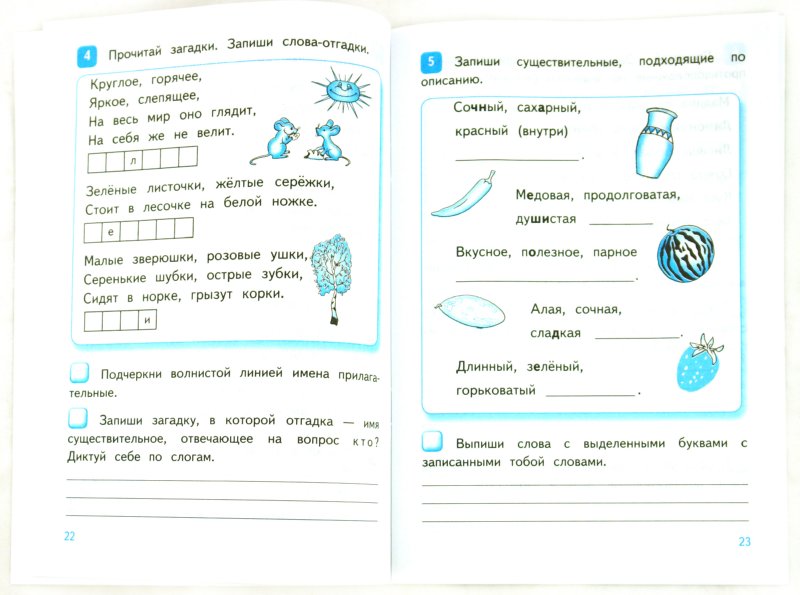 4 Прочитай загадки. Запиши слова-отгадки.
Круглое, горячее,
Яркое, слепящее,
На весь мир оно глядит,
На себя же не велит.
л
Зелёные листочки, жёлтые серёжки,
Стоит в лесочке на белой ножке.
е
Малые зверюшки, розовые ушки,
Серенькие шубки, острые зубки,
Сидят в норке, грызут корки.
и
Подчеркни волнистой линией имена прилага-
тельные.
Запиши загадку, в которой отгадка — имя
существительное, отвечающее на вопрос кто?
Диктуй себе по слогам.
22
5 Запиши существительные, подходящие по
описанию.
Сочный, сахарный,
красный (внутри)
.
Медовая, продолговатая,
душистая
Вкусное, полезное, парное
.
Алая, сочная,
сладкая .
Длинный, зелёный,
горьковатый .
Выпиши слова с выделенными буквами с
записанными тобой словами.
23